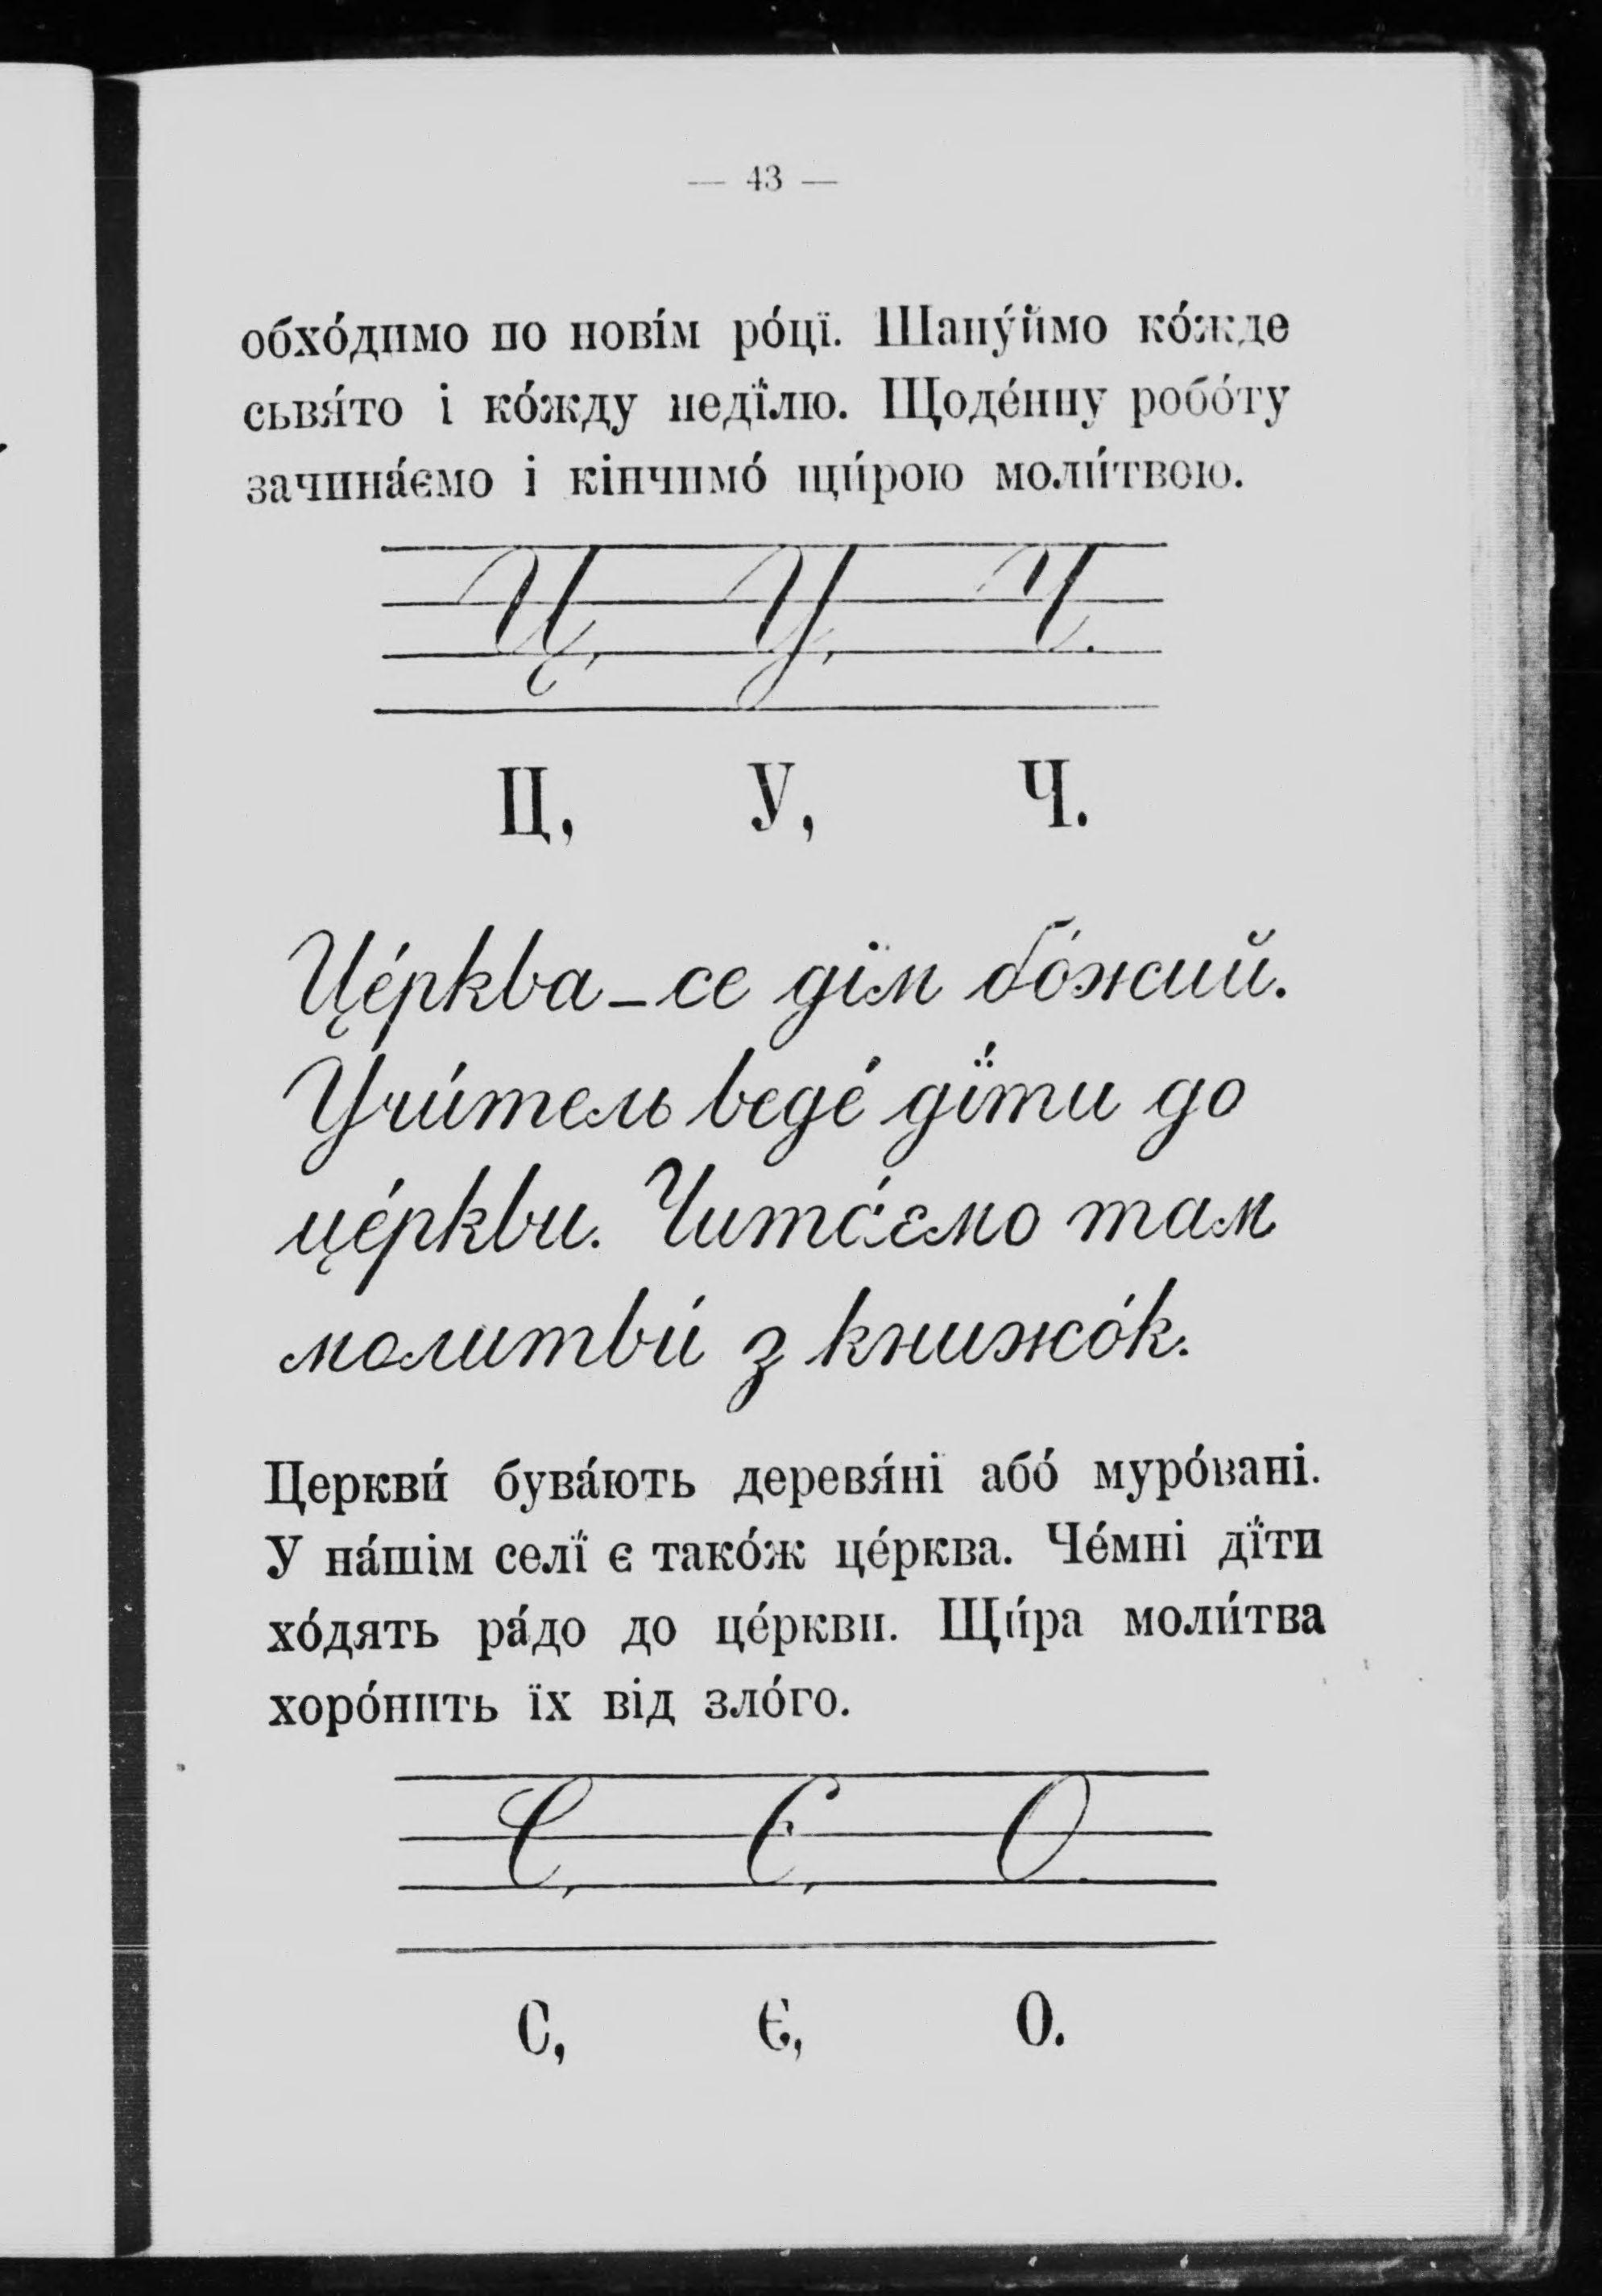 — 43 —
обхо́димо по нові́м ро́цї. Шану́ймо ко́жде
сьвя́то і ко́жду недї́лю. Щоде́нну робо́ту
зачина́ємо і кінчимо́ щи́рою моли́твою.
Ц, У, Ч.
Ц, У, Ч.
Це́рква – се дїм бо́жий.
Учи́тель веде́ дї́ти до
це́ркви. Чита́ємо там
молитви́ з книжо́к.
Церкви́ бува́ють деревя́ні або́ муро́вані.
У на́шім селї́ є тако́ж це́рква. Че́мні дї́ти
хо́дять ра́до до це́ркви. Щи́ра моли́тва
хоро́нить їх від зло́го.
С, Є, О.
С, Є, О.